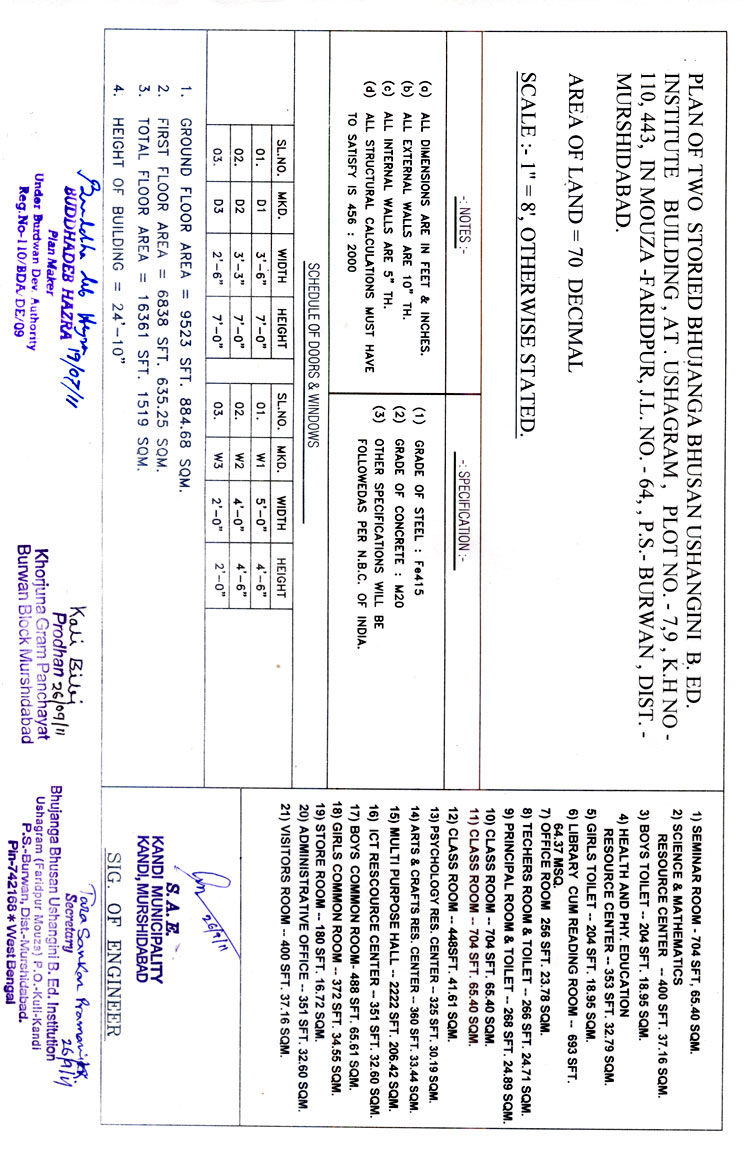 PLAN OF TWO STORIED BHUJANGA BHUSAN USHANGINI B. ED.
INSTITUTE BUILDING , AT . USHAGRAM , PLOT NO. - 7,9 , K.H NO -
110, 443, IN MOUZA -FARIDPUR, J.L. NO. - 64, , P.S.- BURWAN , DIST. -
MURSHIDABAD.
AREA OF LAND = 70 DECIMAL
SCALE :- 1" = 8', OTHERWISE STATED.
-: NOTES :-
(a) ALL DIMENSIONS ARE IN FEET & INCHES.
(b) ALL EXTERNAL WALLS ARE 10" TH.
(c) ALL INTERNAL WALLS ARE 5" TH.
(d) ALL STRUCTURAL CALCULATIONS MUST HAVE
TO SATISFY IS 456 : 2000
-: SPECIFICATION :-
(1) GRADE OF STEEL : Fe415
(2) GRADE OF CONCRETE : M20
(3) OTHER SPECIFICATIONS WILL BE
FOLLOWEDAS PER N.B.C. OF INDIA.
SCHEDULE OF DOORS & WINDOWS
SL.NO. MKD. WIDTH HEIGHT SL.NO. MKD. WIDTH HEIGHT
01. D1 3'-6" 7'-0" 01. W1 5'-0" 4'-6"
02. D2 3'-3" 7'-0" 02. W2 4'-0" 4'-6"
03. D3 2'-6" 7'-0" 03. W3 2'-0" 2'-0"
1. GROUND FLOOR AREA = 9523 SFT. 884.68 SQM.
2. FIRST FLOOR AREA = 6838 SFT. 635.25 SQM.
3. TOTAL FLOOR AREA = 16361 SFT. 1519 SQM.
4. HEIGHT OF BUILDING = 24'-10"
1) SEMINAR ROOM - 704 SFT, 65.40 SQM.
2) SCIENCE & MATHEMATICS
RESOURCE CENTER -- 400 SFT. 37.16 SQM.
3) BOYS TOILET -- 204 SFT. 18.95 SQM.
4) HEALTH AND PHY. EDUCATION
RESOURCE CENTER -- 353 SFT. 32.79 SQM.
5) GIRLS TOILET -- 204 SFT. 18.95 SQM.
6) LIBRARY CUM READING ROOM -- 693 SFT.
64.37 MSQ.
7) OFFICE ROOM 256 SFT. 23.78 SQM.
8) TECHERS ROOM & TOILET -- 266 SFT. 24.71 SQM.
9) PRINCIPAL ROOM & TOILET -- 268 SFT. 24.89 SQM.
10) CLASS ROOM -- 704 SFT. 65.40 SQM.
11) CLASS ROOM -- 704 SFT. 65.40 SQM.
12) CLASS ROOM -- 448SFT. 41.61 SQM.
13) PSYCHOLOGY RES. CENTER -- 325 SFT. 30.19 SQM.
14) ARTS & CRAFTS RES. CENTER -- 360 SFT. 33.44 SQM.
15) MULTI PURPOSE HALL -- 2222 SFT. 206.42 SQM.
16) ICT RESCOURCE CENTER -- 351 SFT. 32.60 SQM.
17) BOYS COMMON ROOM- 488 SFT. 65.61 SQM.
18) GIRLS COMMON ROOM -- 372 SFT. 34.55 SQM.
19) STORE ROOM -- 180 SFT. 16.72 SQM.
20) ADMINISTRATIVE OFFICE -- 351 SFT. 32.60 SQM.
21) VISITORS ROOM -- 400 SFT. 37.16 SQM.
26/9/11
S. A. E.
KANDI MUNICIPALITY
KANDI, MURSHIDABAD
SIG. OF ENGINEER
Buddha deb Hazra 19/07/11
BUDDHADEB HAZRA
Plan Maker
Under Burdwan Dev. Authority
Reg.No-110/BDA/DE/09
Kali Bibi
Prodhan 26/09/11
Khorjuna Gram Panchayat
Burwan Block Murshidabad
Tara Sankar Pramanik
Secretary 26/9/11
Bhujanga Bhusan Ushangini B. Ed. Institution
Ushagram (Faridpur Mouza) P.O.-Kuli-Kandi
P.S.-Burwan, Dist.-Murshidabad.
Pin-742168 * West Bengal